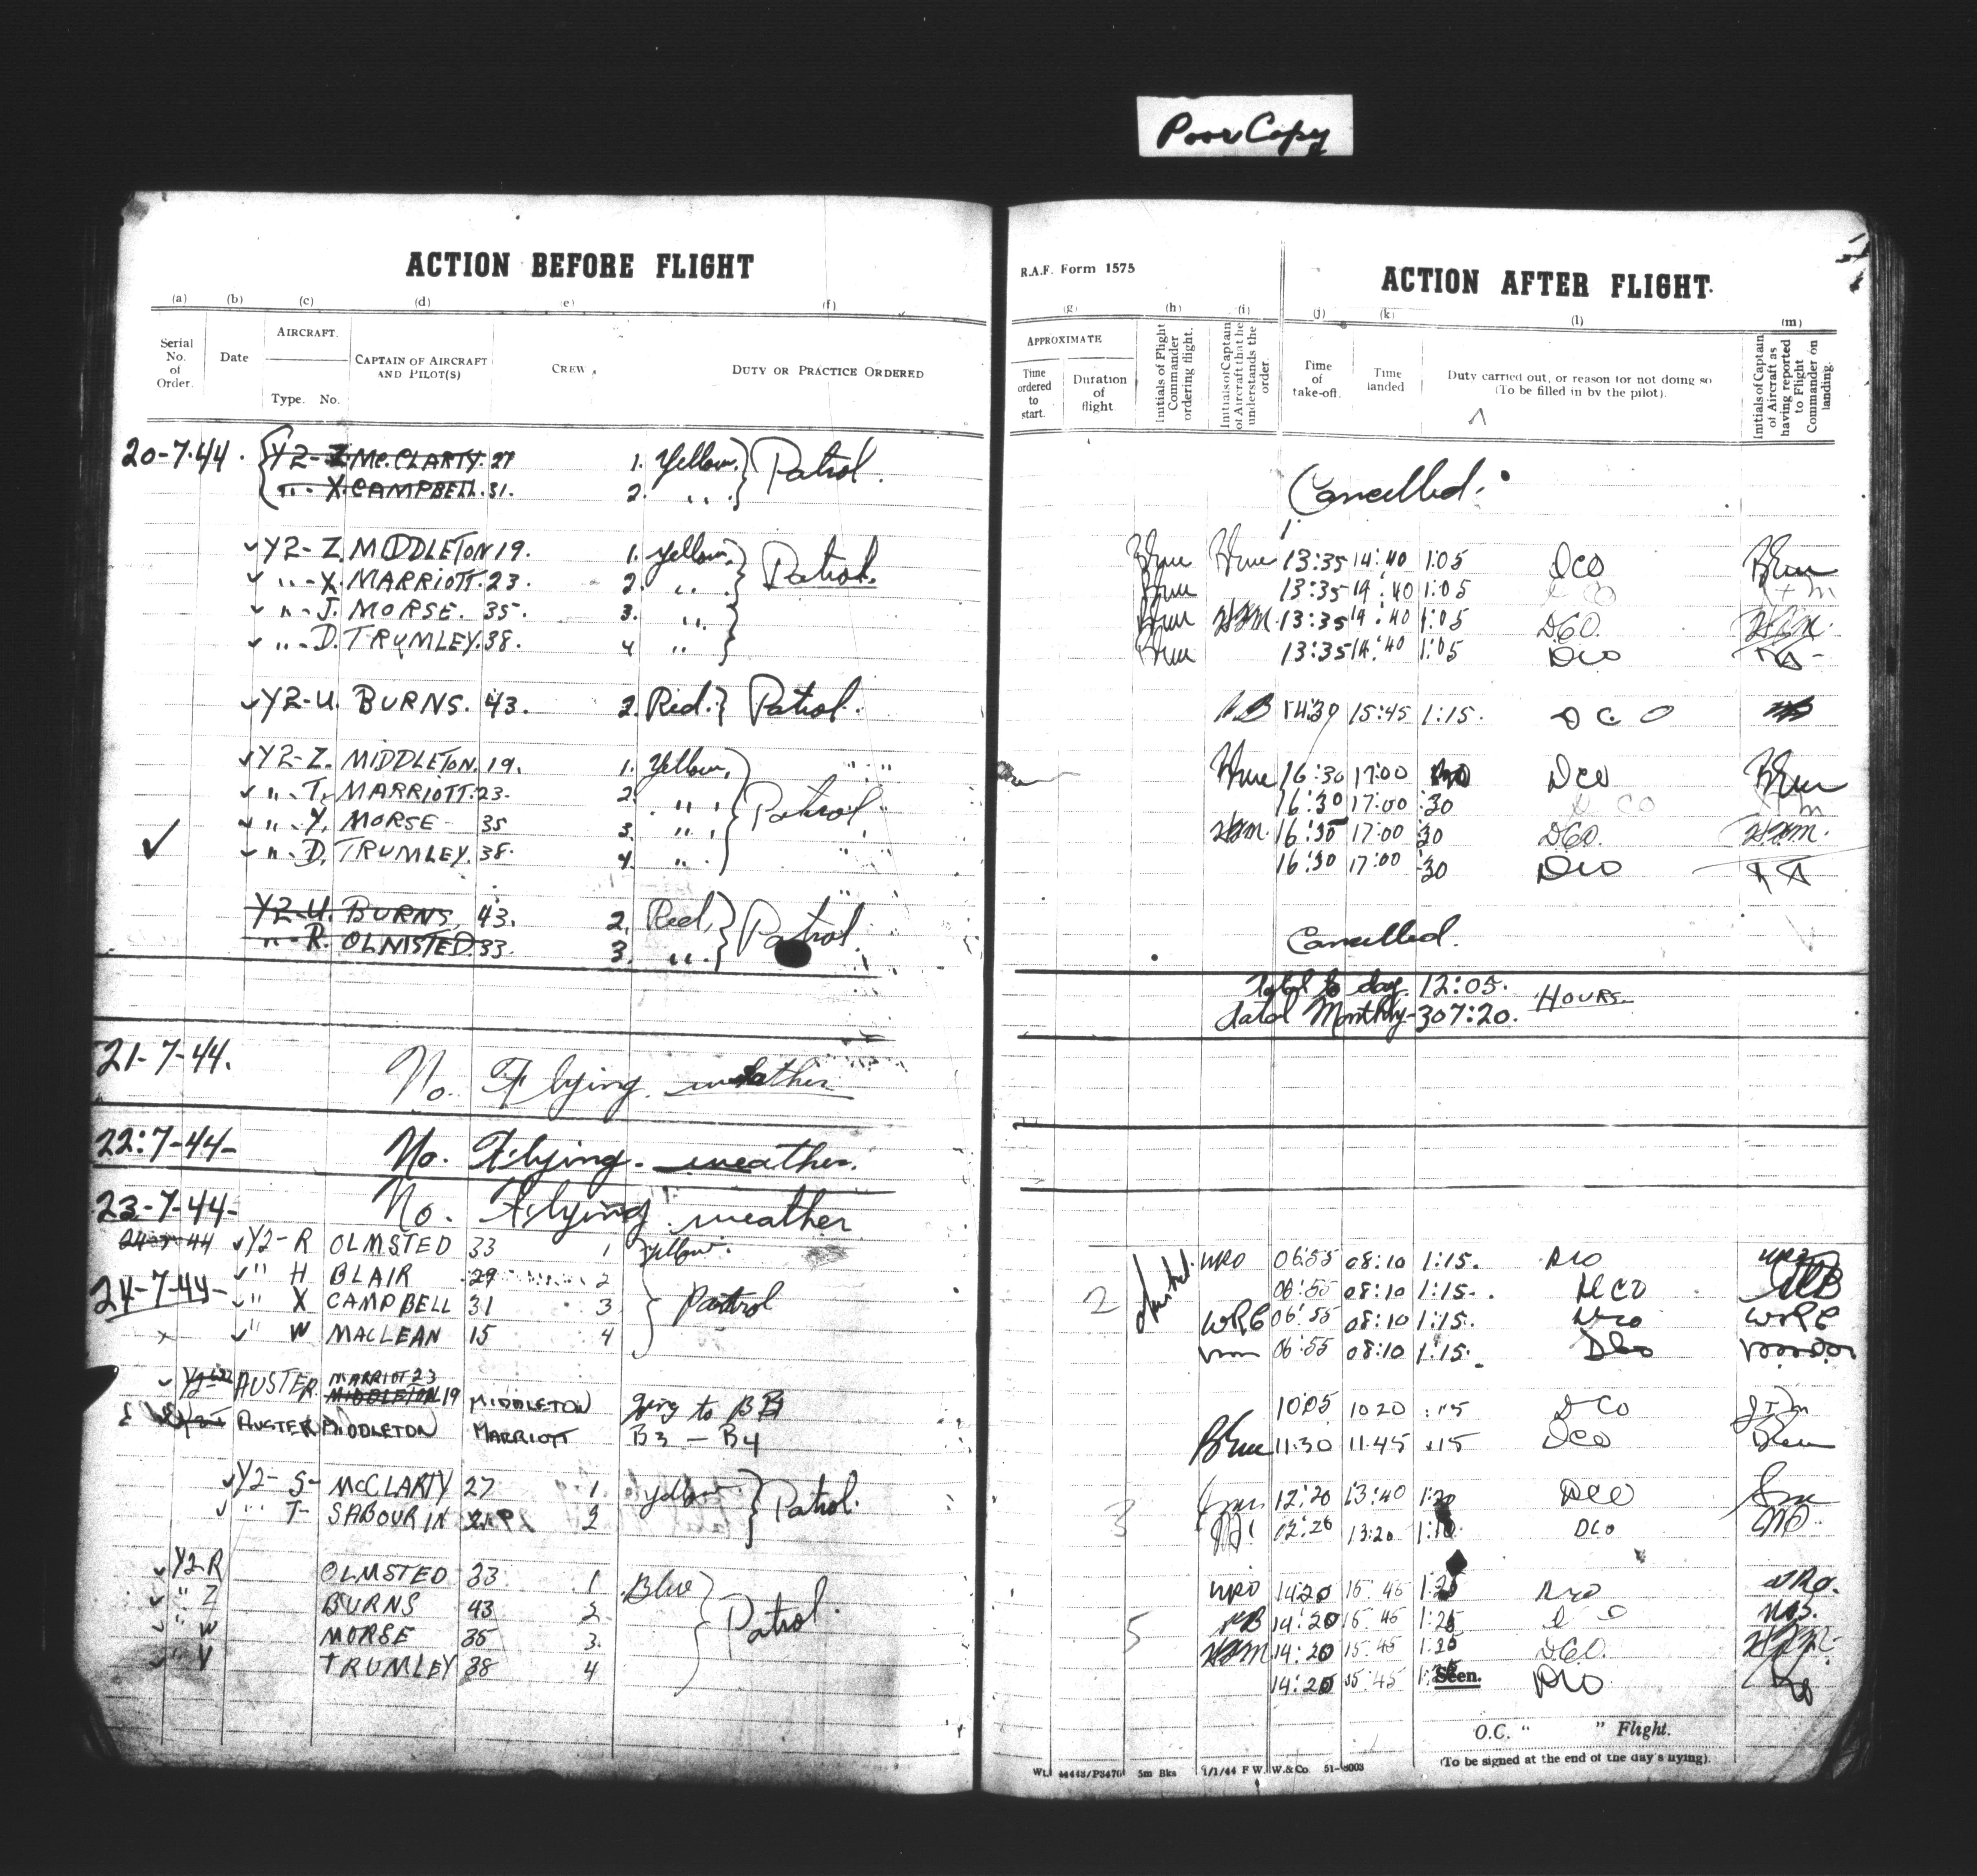 Poor Copy
ACTION BEFORE FLIGHT
(a) (b) (c) (d) (e) (f)
Serial No. of Order. Date AIRCRAFT. Type. No. CAPTAIN OF AIRCRAFT AND PILOT(S) CREW. DUTY OR PRACTICE ORDERED
20-7-44. Y2-Z Mc.CLARTY. 27 1. Yellow. Patrol.
" - X. CAMPBELL. 31. 2. " .
Y2-Z MIDDLETON 19. 1. Yellow. Patrol.
" - X. MARRIOTT. 23. 2. " .
" - J. MORSE. 35. 3. "
" - D. TRUMLEY. 38. 4 "
Y2-U. BURNS. 43. 2. Red. Patrol.
Y2-Z. MIDDLETON. 19. 1. Yellow. Patrol
" - T. MARRIOTT. 23. 2. "
" - Y. MORSE - 35 3. "
" - D. TRUMLEY. 38. 4. "
Y2-U. BURNS, 43. 2. Red. Patrol.
" - R. OLMSTED. 33. 3. "
21-7-44. No. Flying. weather
22:7-44- No. Flying. weather.
23-7-44- No. Flying. weather
24-7-44 Y2-R OLMSTED 33 1 Yellow. Patrol
" H BLAIR 29 2
24-7-44- " X CAMPBELL 31 3
x " W MACLEAN 15 4
AUSTER. MARRIOT 23
MIDDLETON 19 MIDDLETON going to B
AUSTER MIDDLETON MARRIOTT B3 - B4
Y2- S- McCLARTY 27 1 Yellow. Patrol.
" T- SABOURIN 2
Y2-R OLMSTED 33 1 Blue Patrol.
" Z BURNS 43 2
" W MORSE 35 3.
" Y TRUMLEY 38 4
R.A.F. Form 1575
ACTION AFTER FLIGHT.
(g) (h) (i) (j) (k) (l) (m)
APPROXIMATE
Time ordered to start. Duration of flight. Initials of Flight Commander ordering flight. Initials of Captain of Aircraft that he understands the order. Time of take-off. Time landed Duty carried out, or reason for not doing so (To be filled in by the pilot). Initials of Captain of Aircraft as having reported to Flight Commander on landing.
Cancelled.
13:35 14:40 1:05 DCO
13:35 14:40 1:05
13:35 14:40 1:05 DCO.
13:35 14:40 1:05 DCO
14:30 15:45 1:15. DCO
16:30 17:00 DCO
16:30 17:00 :30 DCO
16:30 17:00 :30 DCO.
16:30 17:00 :30 DCO
Cancelled.
Total to day. 12:05.
Total Monthly - 307:20. HOURS.
WRO 06:55 08:10 1:15. DCO
2 06:55 08:10 1:15. DCO
WRC 06:55 08:10 1:15. DCO WRC
06:55 08:10 1:15. DCO
10:05 10 20 :15 DCO
11:30 11:45 :15 DCO
3 12:20 13:40 1:20 DCO
12:20 13:20 DCO
WRO 14:20 15:45 1:25 DCO WRO.
5 14:20 15:45 1:25
14:20 15:45 1:25 DCO.
14:20 15:45 Seen. DCO
O.C. " " Flight.
(To be signed at the end of the day's flying).
5m Bks 1/1/44 F.W.W.&Co